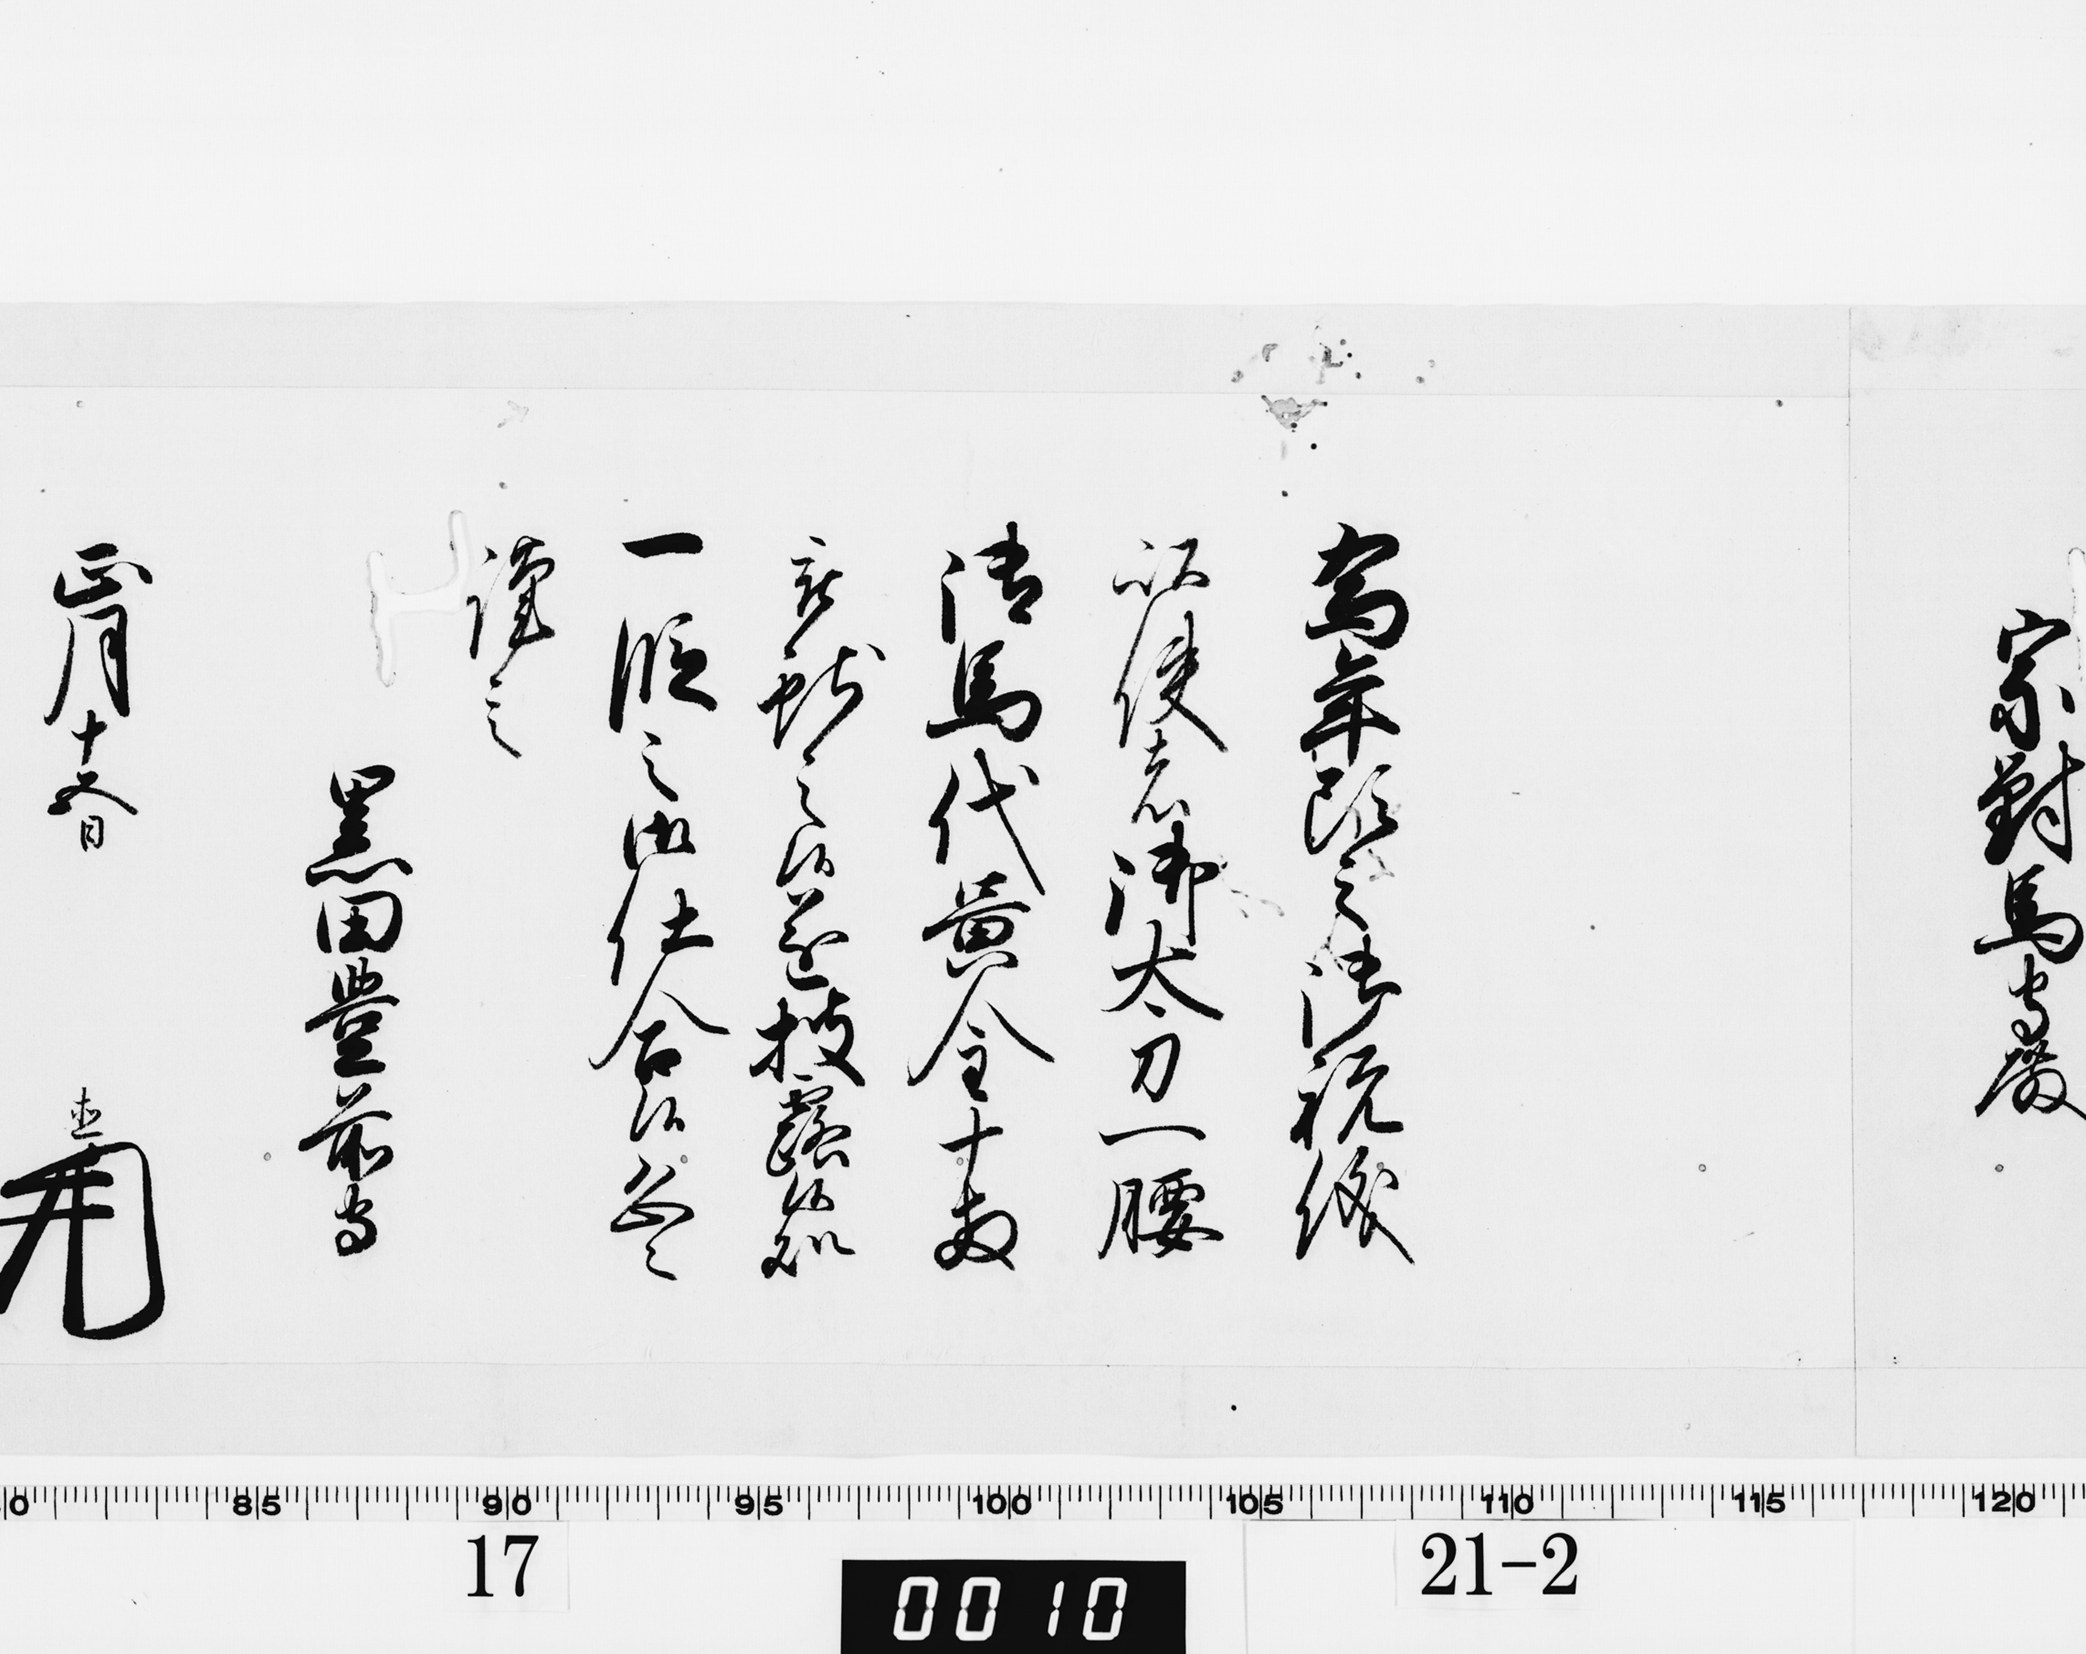 宗對馬守殿
為年頭之御祝儀
以使者御太刀一腰
御馬代黄金十両
被獻之候遂披露候処
一段之御仕合候恐々
謹言
黒田豊前守
正月十五日
直
85 90 95 100 105 110 115 120
17
21-2
0010